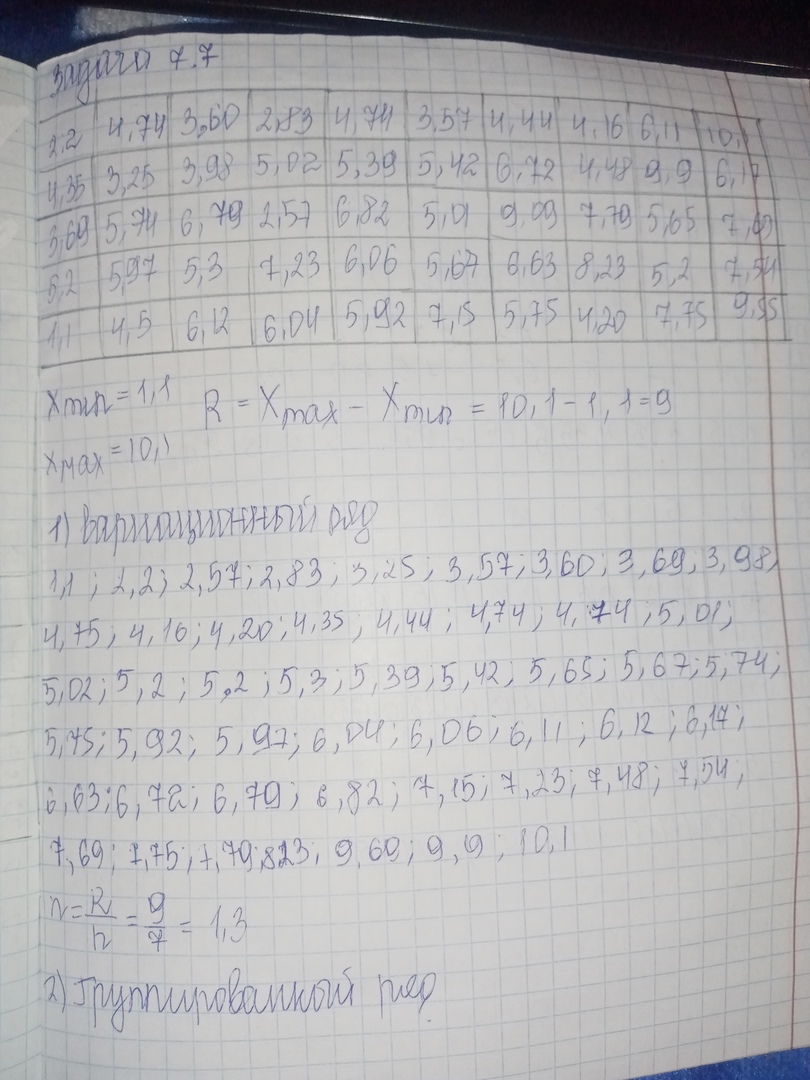 Задача 7.7
2,2 4,74 3,60 2,83 4,74 3,57 4,44 4,16 6,11 10,1
4,35 3,25 3,98 5,02 5,39 5,42 6,72 4,48 9,9 6,17
3,69 5,74 6,79 2,57 6,82 5,01 9,09 7,79 5,65 7,69
5,2 5,97 5,3 7,23 6,06 5,67 6,63 8,23 5,2 7,54
1,1 4,5 6,12 6,04 5,92 7,15 5,75 4,20 7,75
Xmin = 1,1 R = Xmax - Xmin = 10,1 - 1,1 = 9
Xmax = 10,1
1) Вариационный ряд
1,1; 2,2; 2,57; 2,83; 3,25; 3,57; 3,60; 3,69; 3,98;
4,75; 4,16; 4,20; 4,35; 4,44; 4,74; 4,74; 5,01;
5,02; 5,2; 5,2; 5,3; 5,39; 5,42; 5,65; 5,67; 5,74;
5,75; 5,92; 5,97; 6,04; 6,06; 6,11; 6,12; 6,17;
6,63; 6,72; 6,79; 6,82; 7,15; 7,23; 7,48; 7,54;
7,69; 7,75; 7,79; 8,23; 9,69; 9,9; 10,1
n = R/h = 9/7 = 1,3
2) Группированный ряд